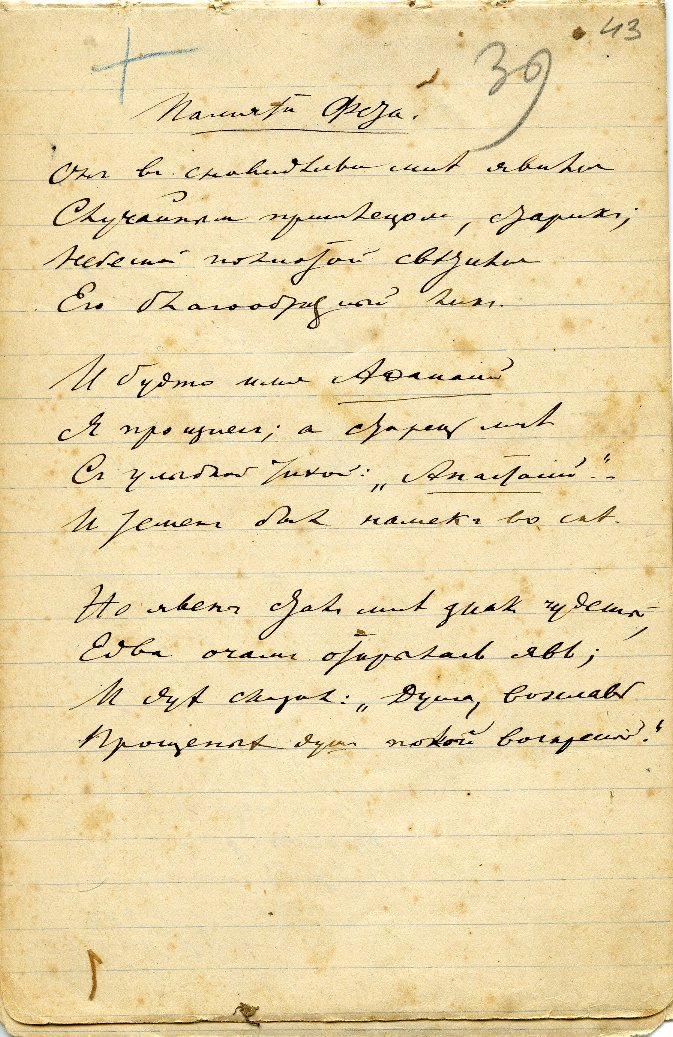 43
39
Памяти Фета.
Онъ въ сновидѣньи мнѣ явился
Случайнымъ пришлецомъ, старикъ;
Небесной полнотой свѣтился
Его благообразный ликъ.
И будто имя Аѳанасій
Я произнесъ; а старецъ мнѣ
Съ улыбкой тихой: „Анастасій“. –
И теменъ былъ намекъ во снѣ.
Но явенъ сталъ мнѣ знакъ чудесный,
Едва очамъ открылась явь;
И духъ сказалъ: „Душа, возславь
Прощеныхъ душъ покой воскресный.“